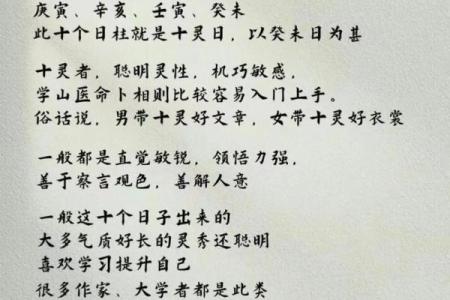 庚寅、辛亥、壬寅、癸未
此十个日柱就是十灵日，以癸未日为甚
十灵者，聪明灵性，机巧敏感，
学山医命卜相则比较容易入门上手。
俗话说，男带十灵好文章，女带十灵好衣裳
一般都是直觉敏锐，领悟力强，
善于察言观色，善解人意
一般这十个日子出来的
大多气质好长的灵秀还聪明
喜欢学习提升自己
很多作家、大学者都是此类